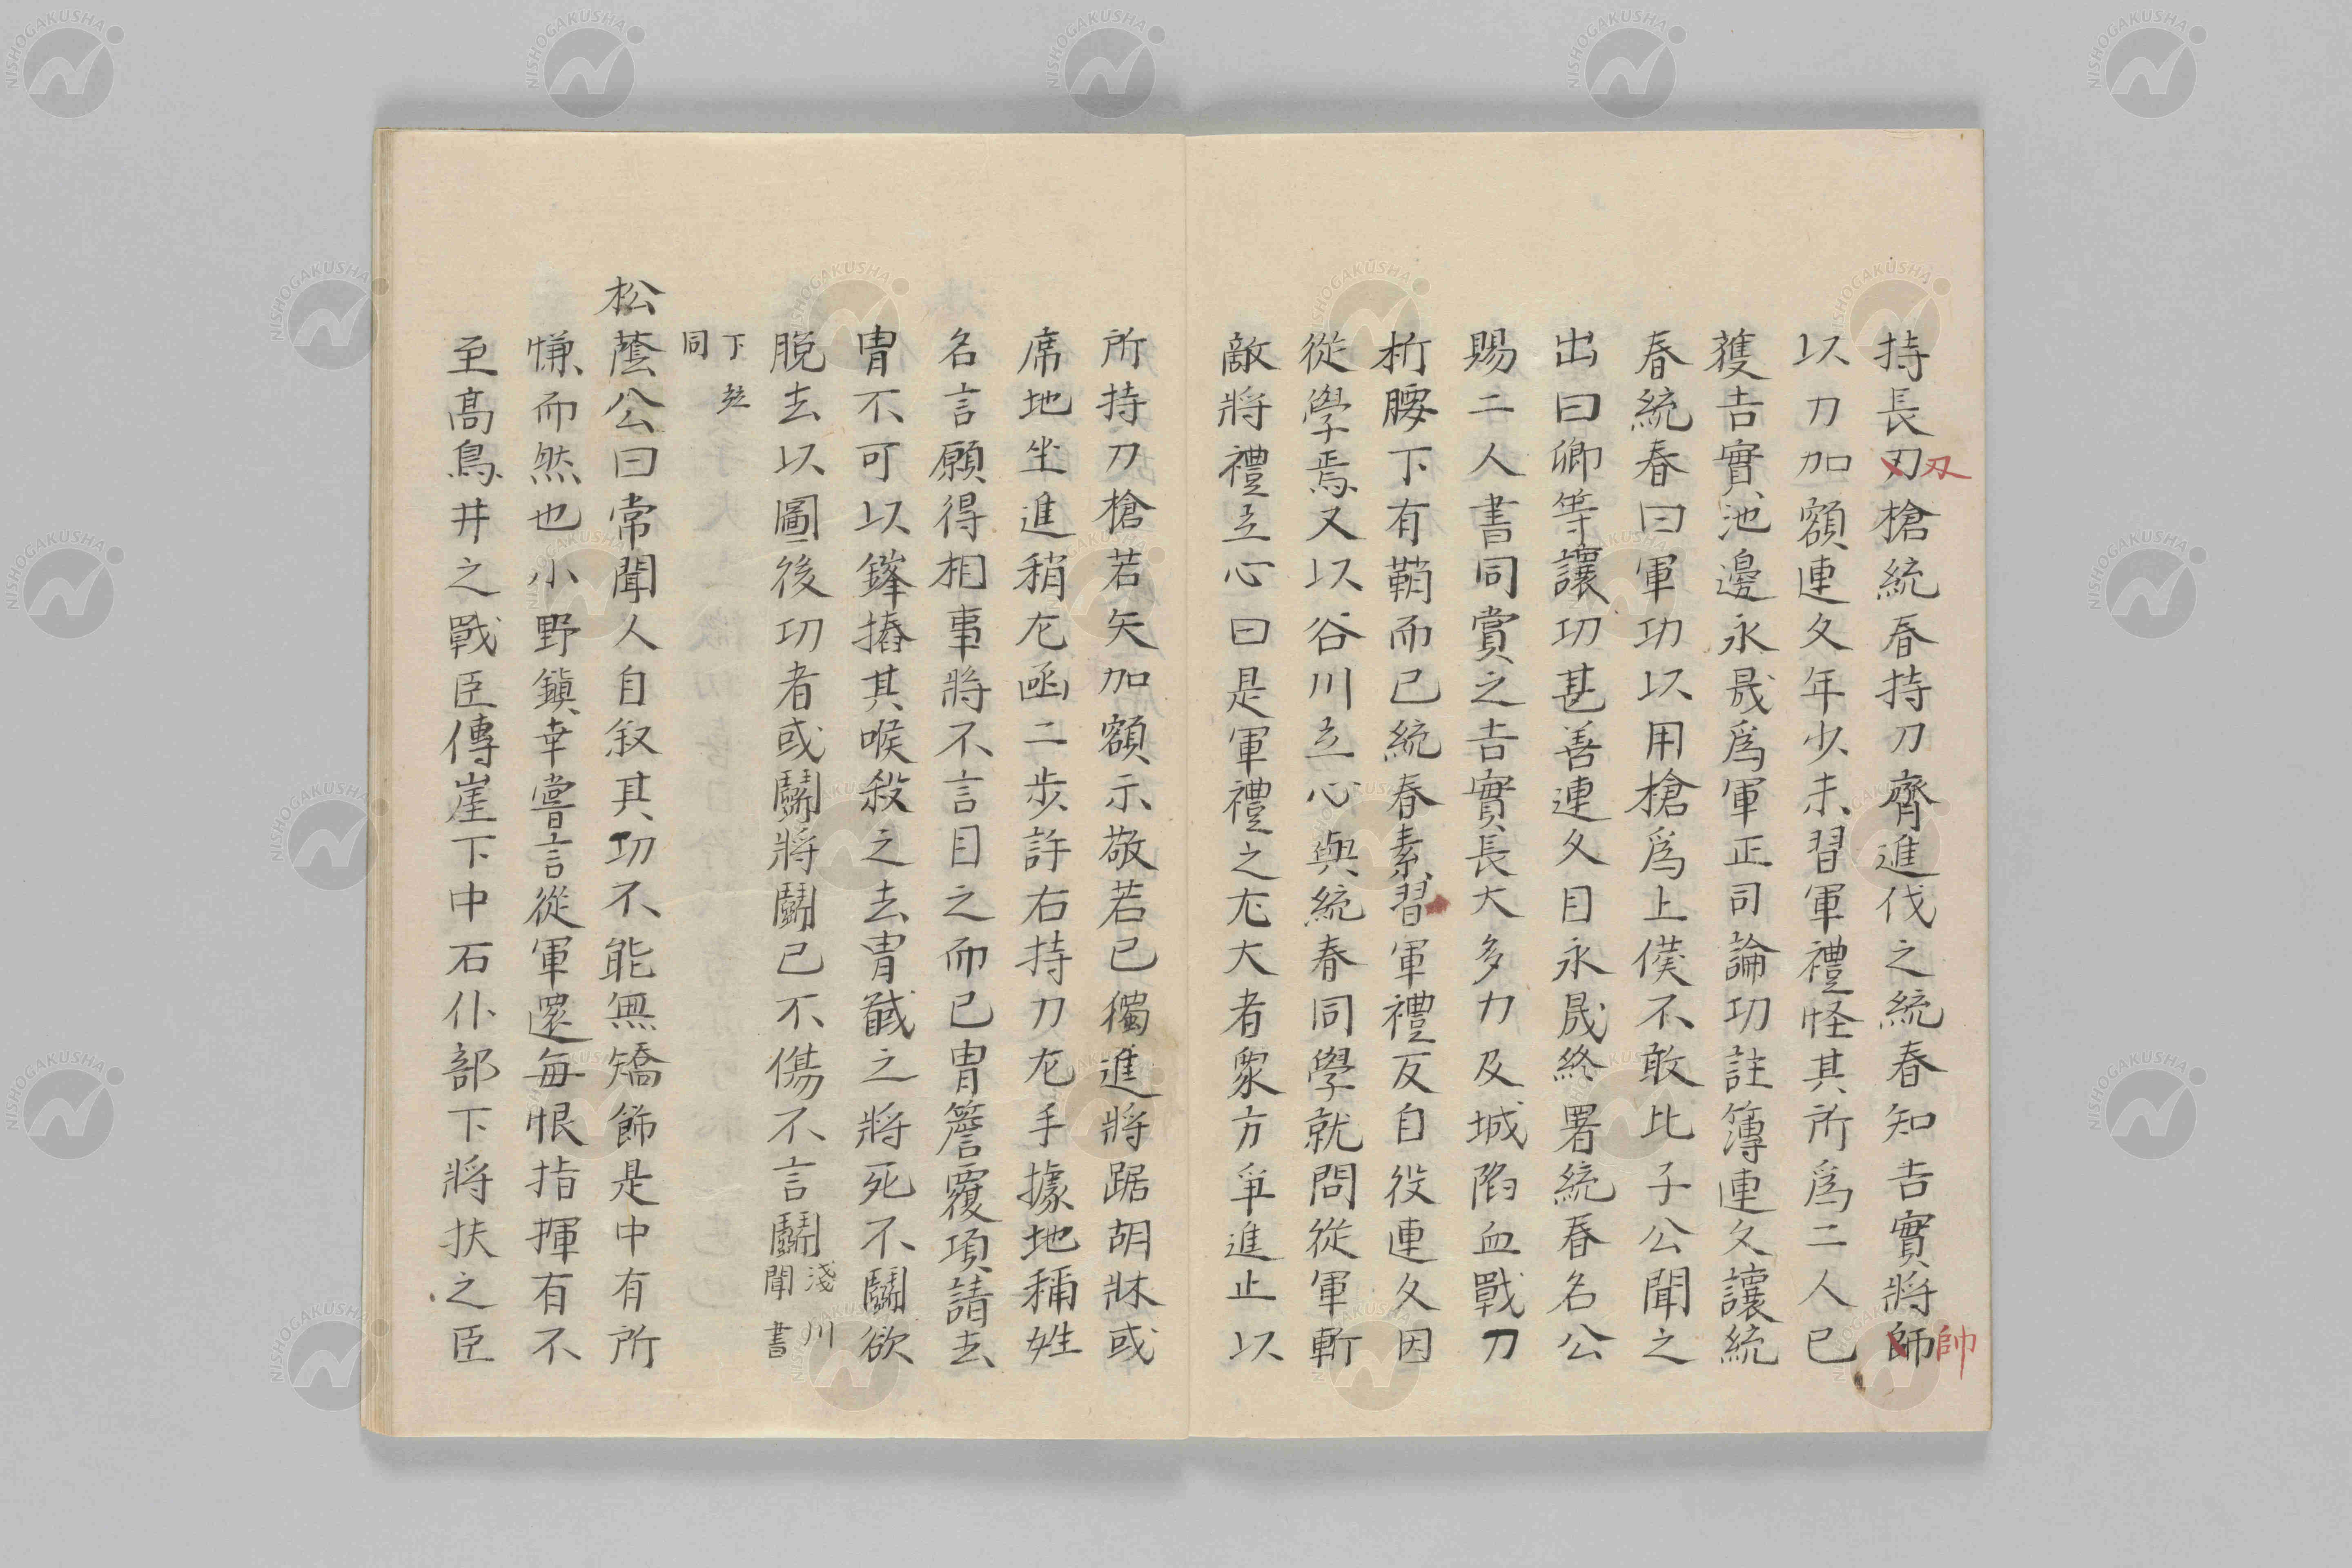 持長刃槍統春持刀齊進伐之統春知吉實將師
刃
帥
以刀加額連久年少未習軍禮怪其所爲二人已
獲吉實池邊永晟爲軍正司論功註簿連久讓統
春統春曰軍功以用槍爲上僕不敢比子公聞之
出曰卿等讓功甚善連久目永晟終署統春名公
賜二人書同賞之吉實長大多力及城陷血戰刀
折腰下有鞘而已統春素習軍禮反自役連久因
從學焉又以谷川立心與統春同學就問從軍斬
敵將禮立心曰是軍禮之尤大者衆方爭進止以
所持刀槍若矢加額示敬若已獨進將踞胡牀或
席地坐進稍左函二步許右持刀左手據地稱姓
名言願得相事將不言目之而已冑簷覆項請去
冑不可以鋒摏其喉殺之去冑馘之將死不鬭欲
脫去以圖後功者或鬭將鬭已不傷不言鬭
淺川
聞書
下玆
同
松蔭公曰常聞人自叙其功不能無矯飾是中有所
慊而然也小野鎭幸嘗言從軍還每恨指揮有不
至高鳥井之戰臣傳崖下中石仆部下將扶之臣
NISHOGAKUSHA